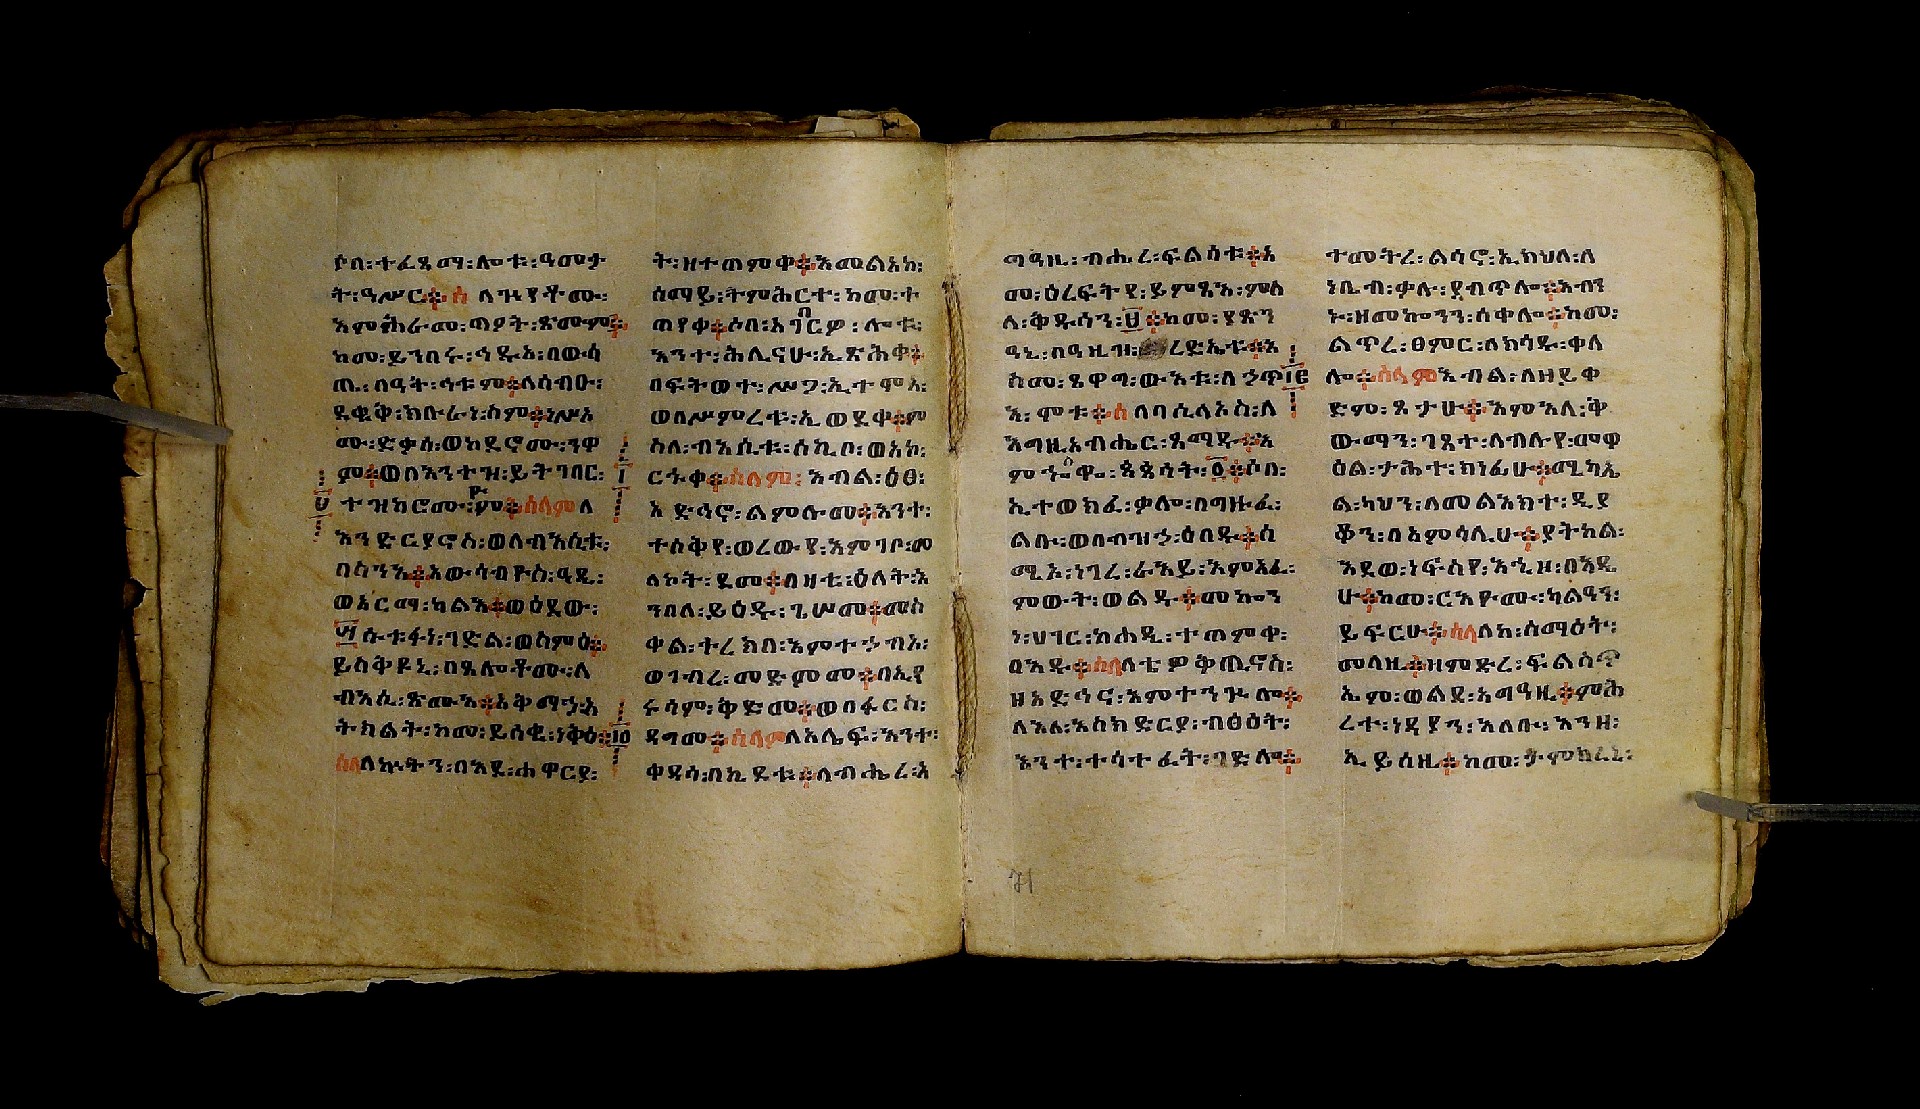 ሶበ፡ተፈጸማ፡ሎቱ፡ዓመታ
ት፡ዓሥር፨ሰ ላዝየቶሙ፡
እምሕራመ፡ጣዖት፡ጽሙም፨
ከመ፡ይንበሩ፡ኀዱአ፡በውሳ
ጤ፡በዓት፡ኅቱም፨ለሰብዑ፡
ደቂቅ፡ክቡራነ፡ስም፨ነሥአ
ሙ፡ድቃስ፡ወከደኖሙ፡ንዋ
ም፨ወበእንተዝ፡ይትገበር፡
ተዝካሮሙ፡ዮም፨ሰላም ለ
እንድርያኖስ፡ወለብእሲቱ፡
በስንእ፨አውሳብዮስ፡
ወአርማ፡ካልእ፨ወዕደው፡
ስሱ፡ቱፋነ፡ገድል፡ወስምዕ፨
ይስቅዩኒ፡በጸሎቶሙ፡ለ
ብእሲ፡ጽሙእ፨አቅማኀ፡አ
ትክልት፡ከመ፡ይሰቂ፡ነቅዕ፨
ሰላ ለኵትን፡በእደ፡ሐዋርያ፡
ት፡ዘተጠምቀ፨እመልአክ፡
ሰማይ፡ትምሕርተ፡ከመ፡ተ
ጠየቀ፨ሶበ፡አግበርዎ፡ሎቱ፡
እንተ፡ሕሊናሁ፡ኢጽሕቀ፡
በፍትወተ፡ሥጋ፡ኢተሞአ፡
ወበሥምረቱ፡ኢወደቀ፨ም
ስለ፡ብእሲቱ፡ሰኪቦ፡ወአኮ፡
ርኅቀ፨ሰላም፡ እብል፡ዕፀ፡
አድኅኖ፡ልምሉመ፨እንተ፡
ተስቅየ፡ወረውየ፡እምገቦ፡መ
ለኮት፡ደመ፨በዛቲ፡ዕለት፡እ
ንበለ፡ይዕዱ፡ጌሠመ፨መስ
ቀል፡ተረክበ፡እምተኃብአ፡
ወገብረ፡መድምመ፨በኢየ
ሩሳም፡ቅድመ፨ወበፋርስ፡
ዳግመ፨ሰላም ለአሌፍ፡እንተ፡
ቀዳሳ፡በኪዶቱ፨ለብሔረ፡አ
ግዓዚ፡ብሔረ፡ፍልሰቱ፨አ
መ፡ዕረፍትየ፡ይምጻእ፡ምስ
ለ፡ቅዱሳን፡፱፨ከመ፡ያጽን
ዓኒ፡በዓዚዝ፡ ረድኤቱ፨እ
ስመ፡ጼዋግ፡ውእቱ፡ለኃጥ
እ፡ሞቱ፨ሰ ለባሲላኦስ፡ለ
እግዚአብሔር፡ጸማዱ፨እ
ምኀበ፡ዋ፡ጳጳሳት፡፩፨ሶበ፡
ኢተወክፈ፡ቃሎ፡በግዙፈ፡
ልቡ፡ወበብዝኃ፡ዕበዱ፨ሰ
ሚኦ፡ነገረ፡ራእይ፡እምአፈ፡
ምውት፡ወልዱ፨መኰን
ነ፡ሀገር፡ከሐዲ፡ተጠምቀ፡
በእዱ፨ሰላ ለቴዎቅጢኖስ፡
ዘአድኀኖ፡እምተንኰሎ፨
ለእለ፡እስክድርያ፡ብፅዕት፡
እንተ፡ተሳተፈት፡ገድሎ፨
ተመትረ፡ልሳኖ፡ኢክህለ፡ለ
ነቢብ፡ቃሉ፡ያብጥሎ፨እብን
ኑ፡ዘመኰንን፡ሰቀሎ፨ከመ፡
ልጥረ፡ፀምር፡ለክሳዱ፡ቀለ
ሎ፨ሰላም እብል፡ለዘደቀ
ድም፡ጼታሁ፨እምእለ፡ቅ
ውማን፡ገጸተ፡ለብሉየ፡መዋ
ዕል፡ታሕተ፡ክነፊሁ፨ሚካኤ
ል፡ካህን፡ለመልአክተ፡ዲያ
ቆን፡በአምሳሊሁ፨ያትከል፡
እደወ፡ነፍስየ፡እኂዘ፡በእዴ
ሁ፨ከመ፡ርእዮሙ፡ካልዓን፡
ይፍርሁ፨ሰላ ለከ፡ሰማዕት፡
መላዚ፨ዘምድረ፡ፍልስጥ
ኤም፡ወልደ፡አግዓዚ፨ምሕ
ረተ፡ነዳያን፡አለቡ፡እንዘ፡
ኢይሰዚ፨ከመ፡ታምከረኒ፡
71